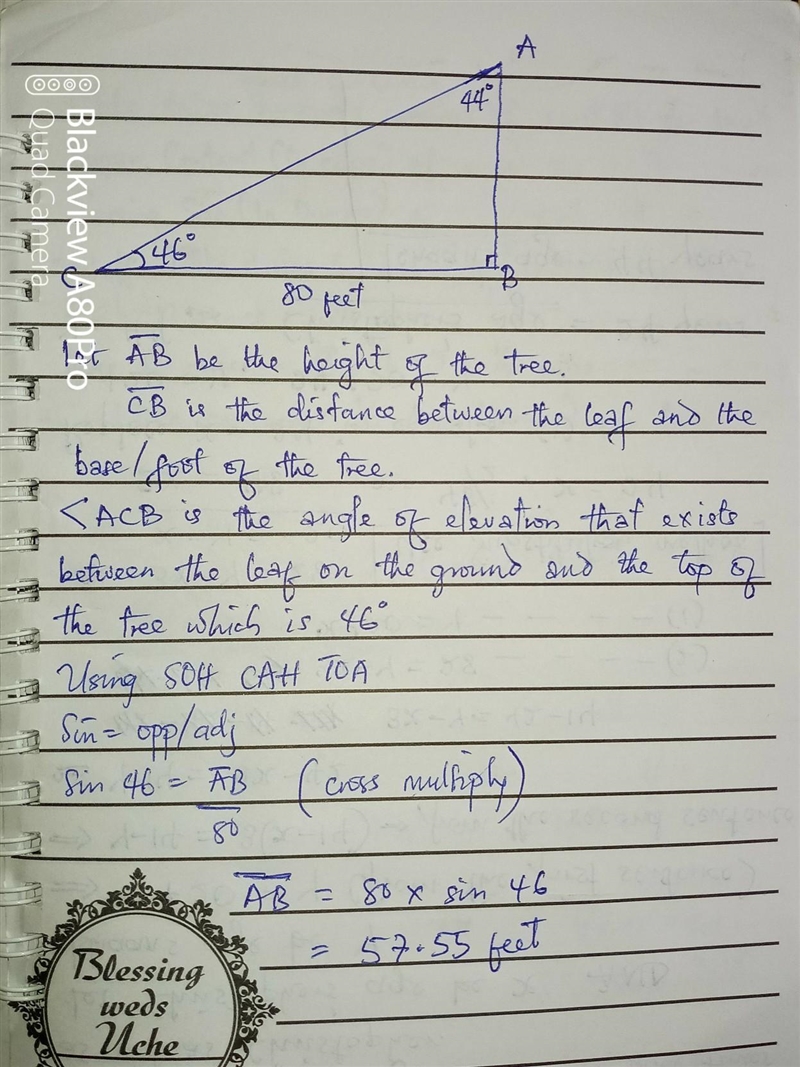 A
44°
46°
C
B
80 feet
Let AB be the height of the tree.
CB is the distance between the leaf and the
base/foot of the tree.
<ACB is the angle of elevation that exists
between the leaf on the ground and the top of
the tree which is 46°
Using SOH CAH TOA
Sin = opp/adj
Sin 46 = AB (cross multiply)
80
AB = 80 x sin 46
= 57.55 feet
Blessing
weds
Uche
Blackview A80Pro
Quad Camera